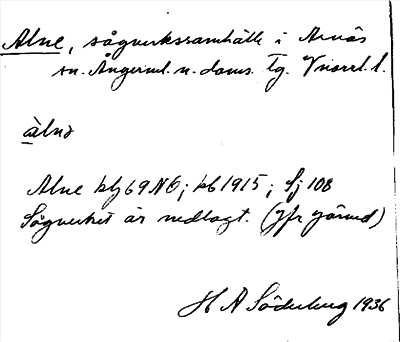 Alne, sågverkssamhälle i Arnäs
sn. Ångerml. n. doms. tg. Vnorrl. l.
àlnə
Alne blj 69 NÖ; kb 1915; Sj 108
Sågverket är nedlagt. (Jfr Järved)
H A Söderberg 1936